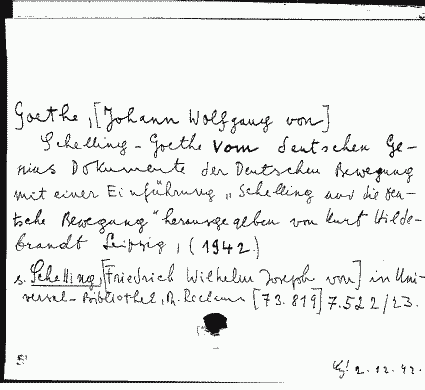 Goethe, [Johann Wolfgang von]
Schelling - Goethe Vom deutschen Ge-
nius Dokumente der Deutschen Bewegung
mit einer Einführung „Schelling und die deu-
tsche Bewegung" herausgegeben von Kurt Hilde-
brandt Leipzig, (1942)
s. Schelling, [Friedrich Wilhelm Joseph von] in Uni-
versal-Bibliothek, Ph. Reclam [73.819] 7.522/23.
2.12.42.